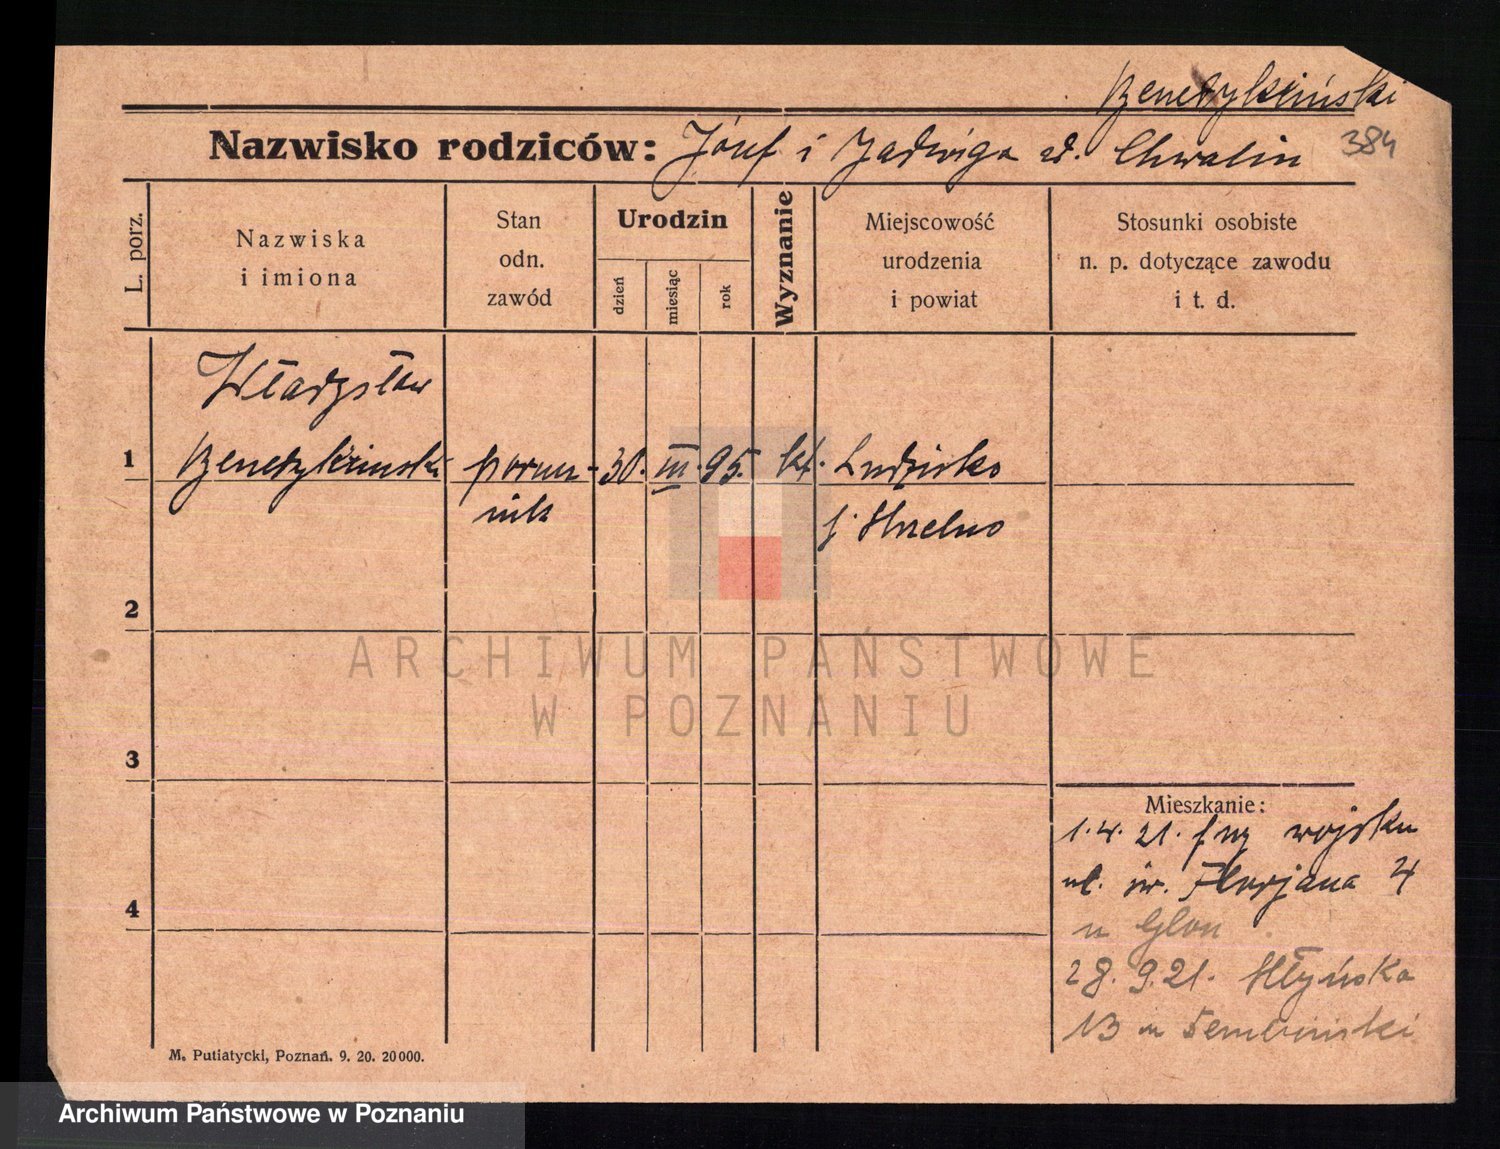 Benedykciński
Nazwisko rodziców: Józef i Jadwiga zd. Chwalin 384
L. porz.
Nazwiska
i imiona
Stan
odn.
zawód
Urodzin
dzień
miesiąc
rok
Wyznanie
Miejscowość
urodzenia
i powiat
Stosunki osobiste
n. p. dotyczące zawodu
i t. d.
Władysław
1 Benedykciński porucz- 30. III. 95. kt. Ludzisko
nik p. Strzelno
2
3
4
Mieszkanie:
1.4.21. wojsku
ul. św. Florjana 4
u Glon
28.9.21. Młyńska
13 u
M. Putiatycki, Poznań. 9. 20. 20000.
ARCHIWUM PAŃSTWOWE
W POZNANIU
Archiwum Państwowe w Poznaniu